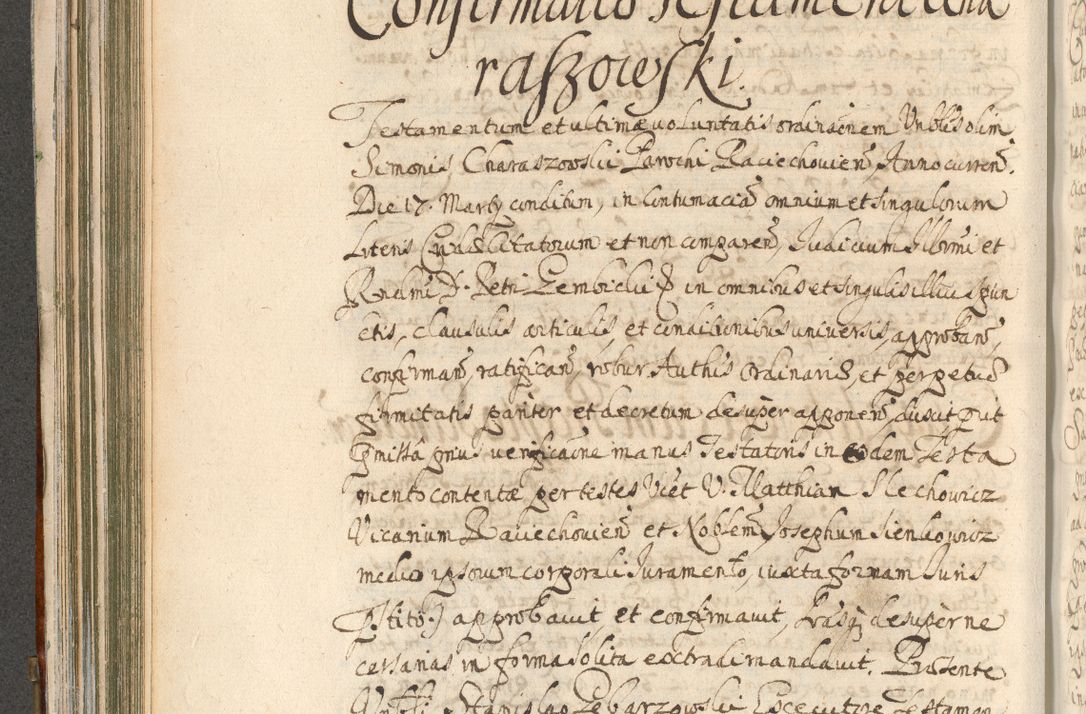 Confirmatio Testamenti Cha
raszowski.
Testamentum et ultimæ voluntatis ordinãonem Vnblis olim
Simonis Charaszowskii Parochi Raciechovieñ, Anno curreñ.
Die 17. Martÿ conditum, in Contumaciã omnium et singulorum
Literis Citatorum et non compareñ, Judicium Illmi et
Rndmi D. Petri Gembickii in omnibus et singulis illius pun
ctis, clausulis articulis et conditionibus universis, approbañ,
confirmañ, ratificañ, robur Authis Ordinariæ, et perpetuæ
firmitatis pariter et decretum desuper apponeñ, duxit put
pmissa prius verificãone manus Testatoris in eodem Testa
mento contentæ per testes Vicet V. Matthiam Slechowicz
Vicarium Raciechovieñ et Noblem Josephum Sienkowicz
medio ipsorum corporali Juramento, iuxta formam Juris
Pstito) approbavit et confirmavit, Lrasq desuper ne
cessarias in forma solita extradi mandavit. Præsente
Stanislao Zebarzowski Executore Testamen